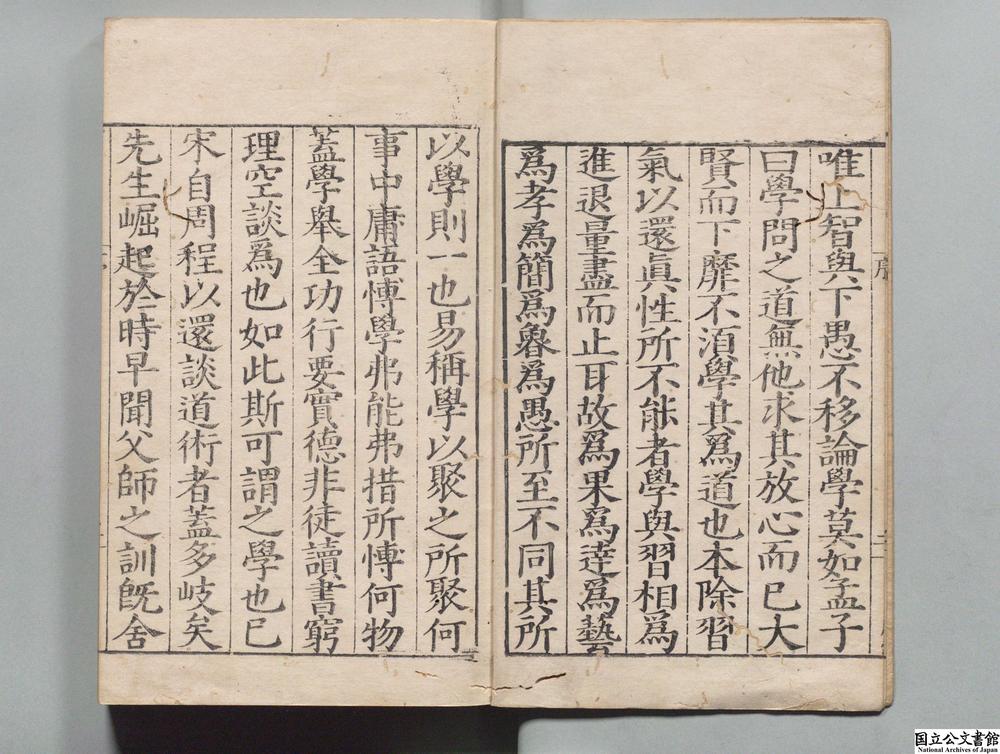 唯上智與下愚不移論學莫如孟子
曰學問之道無他求其放心而已大
賢而下靡不湏學其爲道也本除習
氣以還眞性所不能者學與習相爲
進退量盡而止耳故爲果爲達爲藝
爲孝爲簡爲魯爲愚所至不同其所
以學則一也易稱學以聚之所聚何
事中庸語愽學弗能弗措所愽何物
蓋學舉全功行要實德非徒讀書窮
理空談爲也如此斯可謂之學也已
宋自周程以還談道術者蓋多岐矣
先生崛起於時早聞父師之訓旣舍
国立公文書館
National Archives of Japan